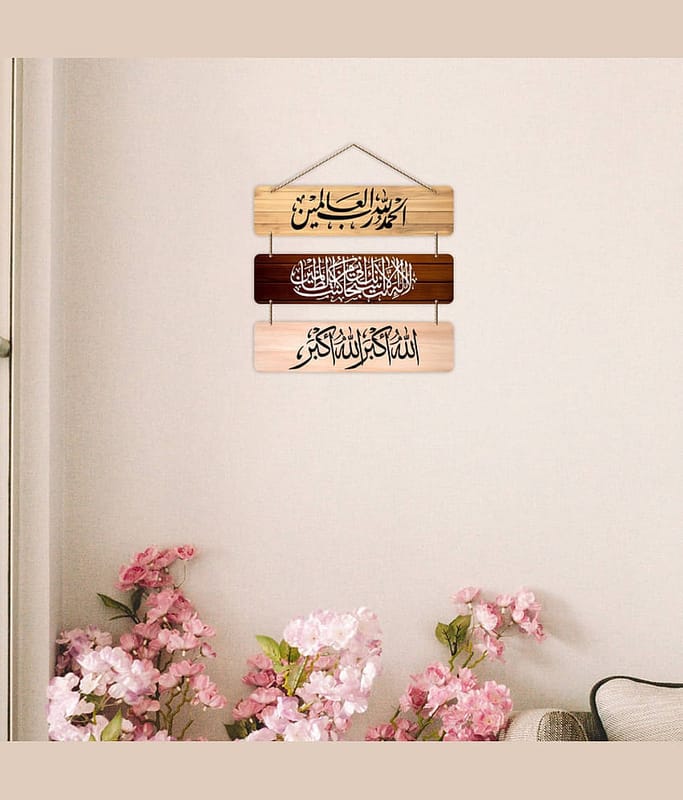 الحمد لله رب العالمين
لا إله إلا أنت سبحانك إني كنت من الظالمين
الله أكبر الله أكبر